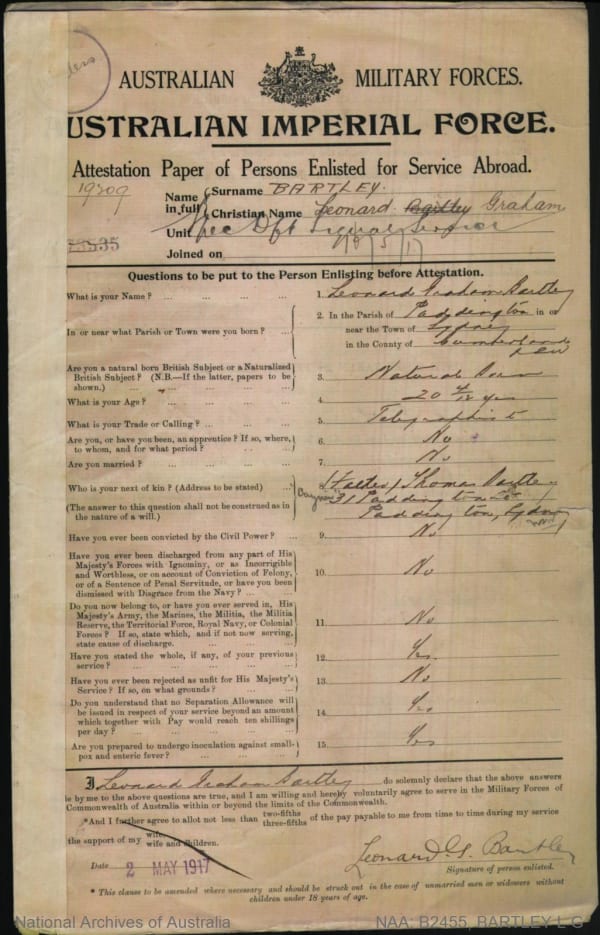 AUSTRALIAN MILITARY FORCES.
USTRALIAN IMPERIAL FORCE.
Attestation Paper of Persons Enlisted for Service Abroad.
19309
Name in full { Surname BARTLEY.
Christian Name Leonard Bartley Graham
Unit Signal Service
Joined on
Questions to be put to the Person Enlisting before Attestation.
What is your Name ? ... ... ... ... 1. Leonard Graham Bartley
In or near what Parish or Town were you born ? ... 2. In the Parish of Paddington in or
near the Town of Sydney
in the County of Cumberland
NSW
Are you a natural born British Subject or a Naturalized
British Subject ? (N.B.—If the latter, papers to be
shown.) ... ... ... ... 3. Natural Born
What is your Age ? ... ... ... ... 4. 20 4/12 yrs
What is your Trade or Calling ? ... ... ... 5. Telegraphist
Are you, or have you been, an apprentice ? If so, where,
to whom, and for what period ? ... ... 6. No
Are you married ? ... ... ... ... 7. No
Who is your next of kin ? (Address to be stated) ... 8. (Father) Thomas Bartley
31 Paddington St
(The answer to this question shall not be construed as in
the nature of a will.) Paddington, Sydney
NSW
Have you ever been convicted by the Civil Power ? ... 9. No
Have you ever been discharged from any part of His
Majesty's Forces with Ignominy, or as Incorrigible
and Worthless, or on account of Conviction of Felony,
or of a Sentence of Penal Servitude, or have you been
dismissed with Disgrace from the Navy ? ... ... 10. No
Do you now belong to, or have you ever served in, His
Majesty's Army, the Marines, the Militia, the Militia
Reserve, the Territorial Force, Royal Navy, or Colonial
Forces ? If so, state which, and if not now serving,
state cause of discharge. ... ... 11. No
Have you stated the whole, if any, of your previous
service ? ... ... ... ... 12. Yes
Have you ever been rejected as unfit for His Majesty's
Service ? If so, on what grounds ? ... ... 13. No
Do you understand that no Separation Allowance will
be issued in respect of your service beyond an amount
which together with Pay would reach ten shillings
per day ? ... ... ... ... 14. Yes
Are you prepared to undergo inoculation against small-
pox and enteric fever ? ... ... ... 15. Yes
I, Leonard Graham Bartley do solemnly declare that the above answers
e by me to the above questions are true, and I am willing and hereby voluntarily agree to serve in the Military Forces of
Commonwealth of Australia within or beyond the limits of the Commonwealth.
*And I further agree to allot not less than two-fifths three-fifths of the pay payable to me from time to time during my service
the support of my wife. wife and children.
Leonard G. Bartley
Date 2 MAY 1917 Signature of person enlisted.
* This clause to be amended where necessary and should be struck out in the case of unmarried men or widowers without
children under 18 years of age.
National Archives of Australia NAA: B2455, BARTLEY L G